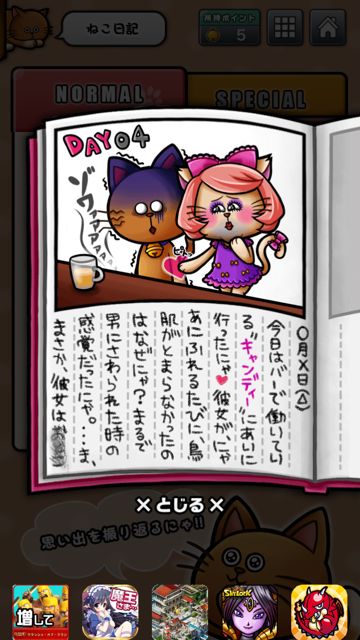 ねこ日記
所持ポイント
5
NORMAL
SPECIAL
DAY04
ゾワァァァァァ
ピト
〇月×日(△)
今日はバーで働いてい
る"キャンディー"にあいに
行ったにゃ♥彼女が、にゃ
あにふれるたびに、鳥
肌がとまらなかったの
はなぜにゃ?まるで
男にさわられた時の
感覚だったにゃ。・・・ま、
まさか、彼女は
×とじる×
思い出を振り返るにゃ!!
増して
魔王
さま